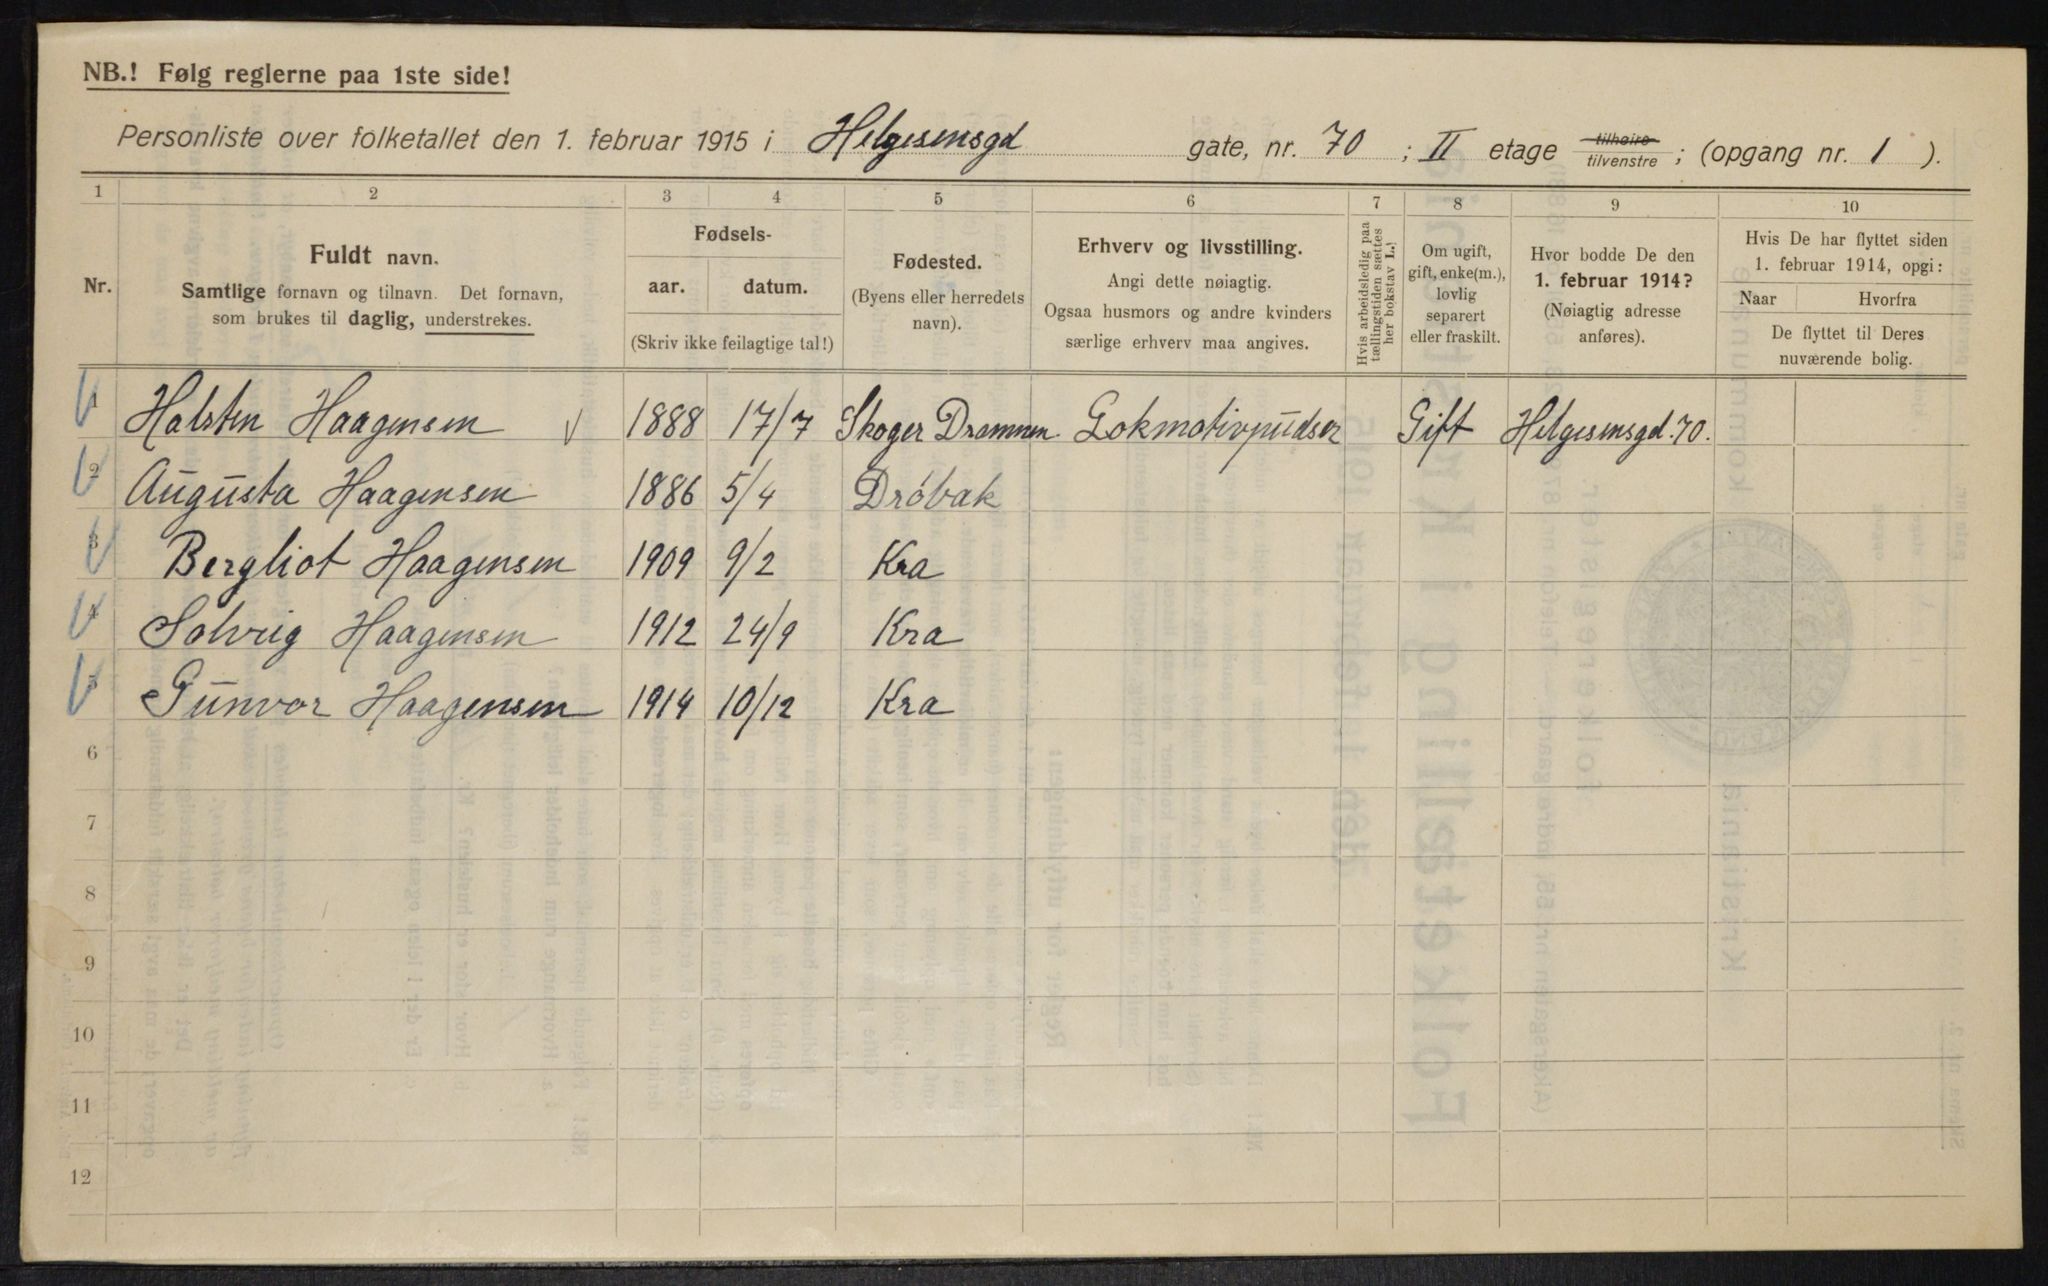 NB.! Følg reglerne paa 1ste side!
Personliste over folketallet den 1. februar 1915 i Helgesensgd gate, nr. 70 ; II etage tilhøire tilvenstre ; (opgang nr. 1 ).
1 2 3 4 5 6 7 8 9 10
Nr.
Fuldt navn.
Samtlige fornavn og tilnavn. Det fornavn,
som brukes til daglig, understrekes.
Fødsels-
aar. datum.
(Skriv ikke feilagtige tal!)
Fødested.
(Byens eller herredets
navn).
Erhverv og livsstilling.
Angi dette nøiagtig.
Ogsaa husmors og andre kvinders
særlige erhverv maa angives.
Hvis arbeidsledig paa
tællingstiden sættes
her bokstav L.!
Om ugift,
gift, enke(m.),
lovlig
separert
eller fraskilt.
Hvor bodde De den
1. februar 1914?
(Nøiagtig adresse
anføres).
Hvis De har flyttet siden
1. februar 1914, opgi:
Naar Hvorfra
De flyttet til Deres
nuværende bolig.
1 Halsten Haagensen 1888 17/7 Skoger Drammen. Lokmotivpudser Gift Helgesensgd. 70.
2 Augusta Haagensen 1886 5/4 Drøbak
3 Bergliot Haagensen 1909 9/2 Kra
4 Solveig Haagensen 1912 24/9 Kra
5 Gunvor Haagensen 1914 10/12 Kra
6
7
8
9
10
11
12